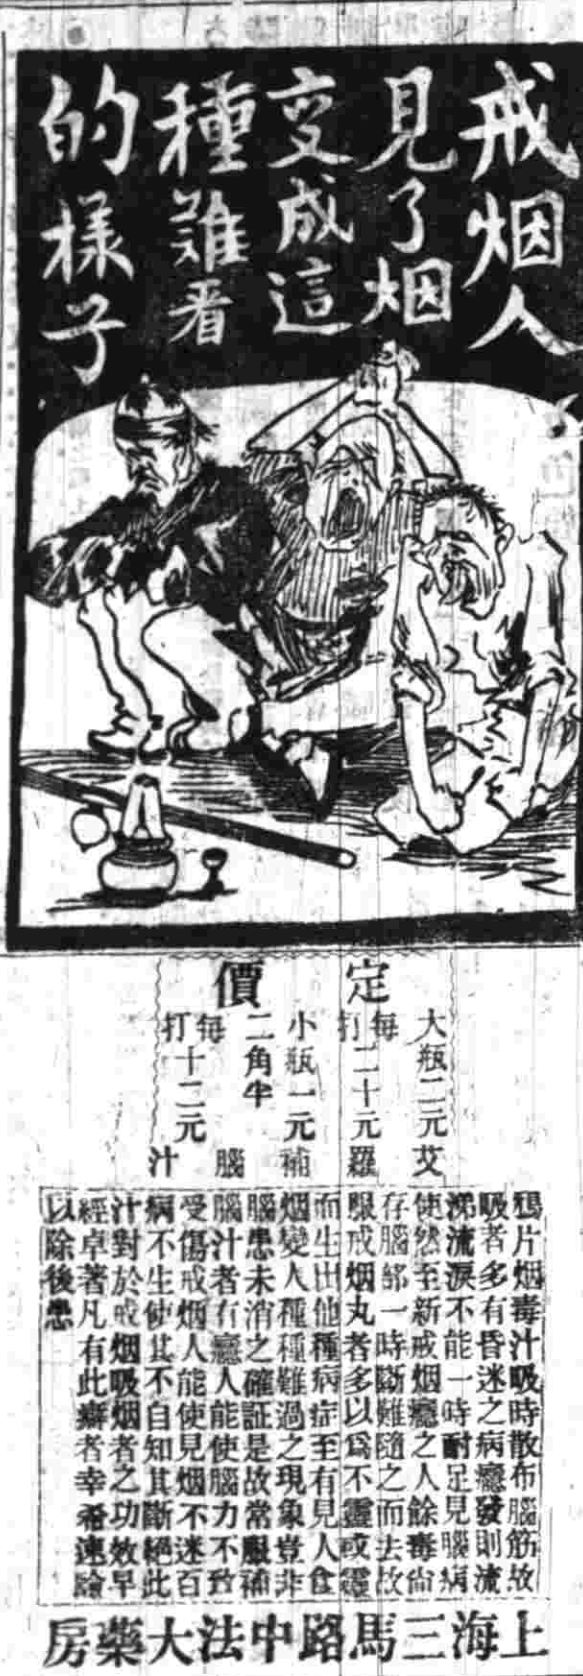 戒烟人
見了烟
变成這
種难看
的樣子
定價
大瓶二元
每打二十元
小瓶一元二角半
每打十二元
艾羅補腦汁
鴉片烟毒汁吸時散布腦筋故
吸者多有昏迷之病癮發則流
涕流淚不能一時耐足見腦病
使然至新戒烟癮之人餘毒尚
存腦部一時斷難隨之而去故
服戒烟丸者多以爲不靈或靈
而生出他種病症至有見人食
烟變人種種難過之現象豈非
腦患未消之確証是故常服補
腦汁者有癮人能使腦力不致
受傷戒烟人能使見烟不迷百
病不生使其不自知其斷絕此
汁對於戒烟吸烟者之功效早
經卓著凡有此癖者幸希速驗
以除後患
上海三馬路中法大藥房